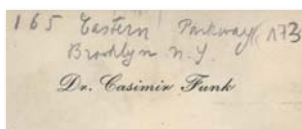 165 Eastern Parkway, A73
Brooklyn N.Y.
Dr. Casimir Funk